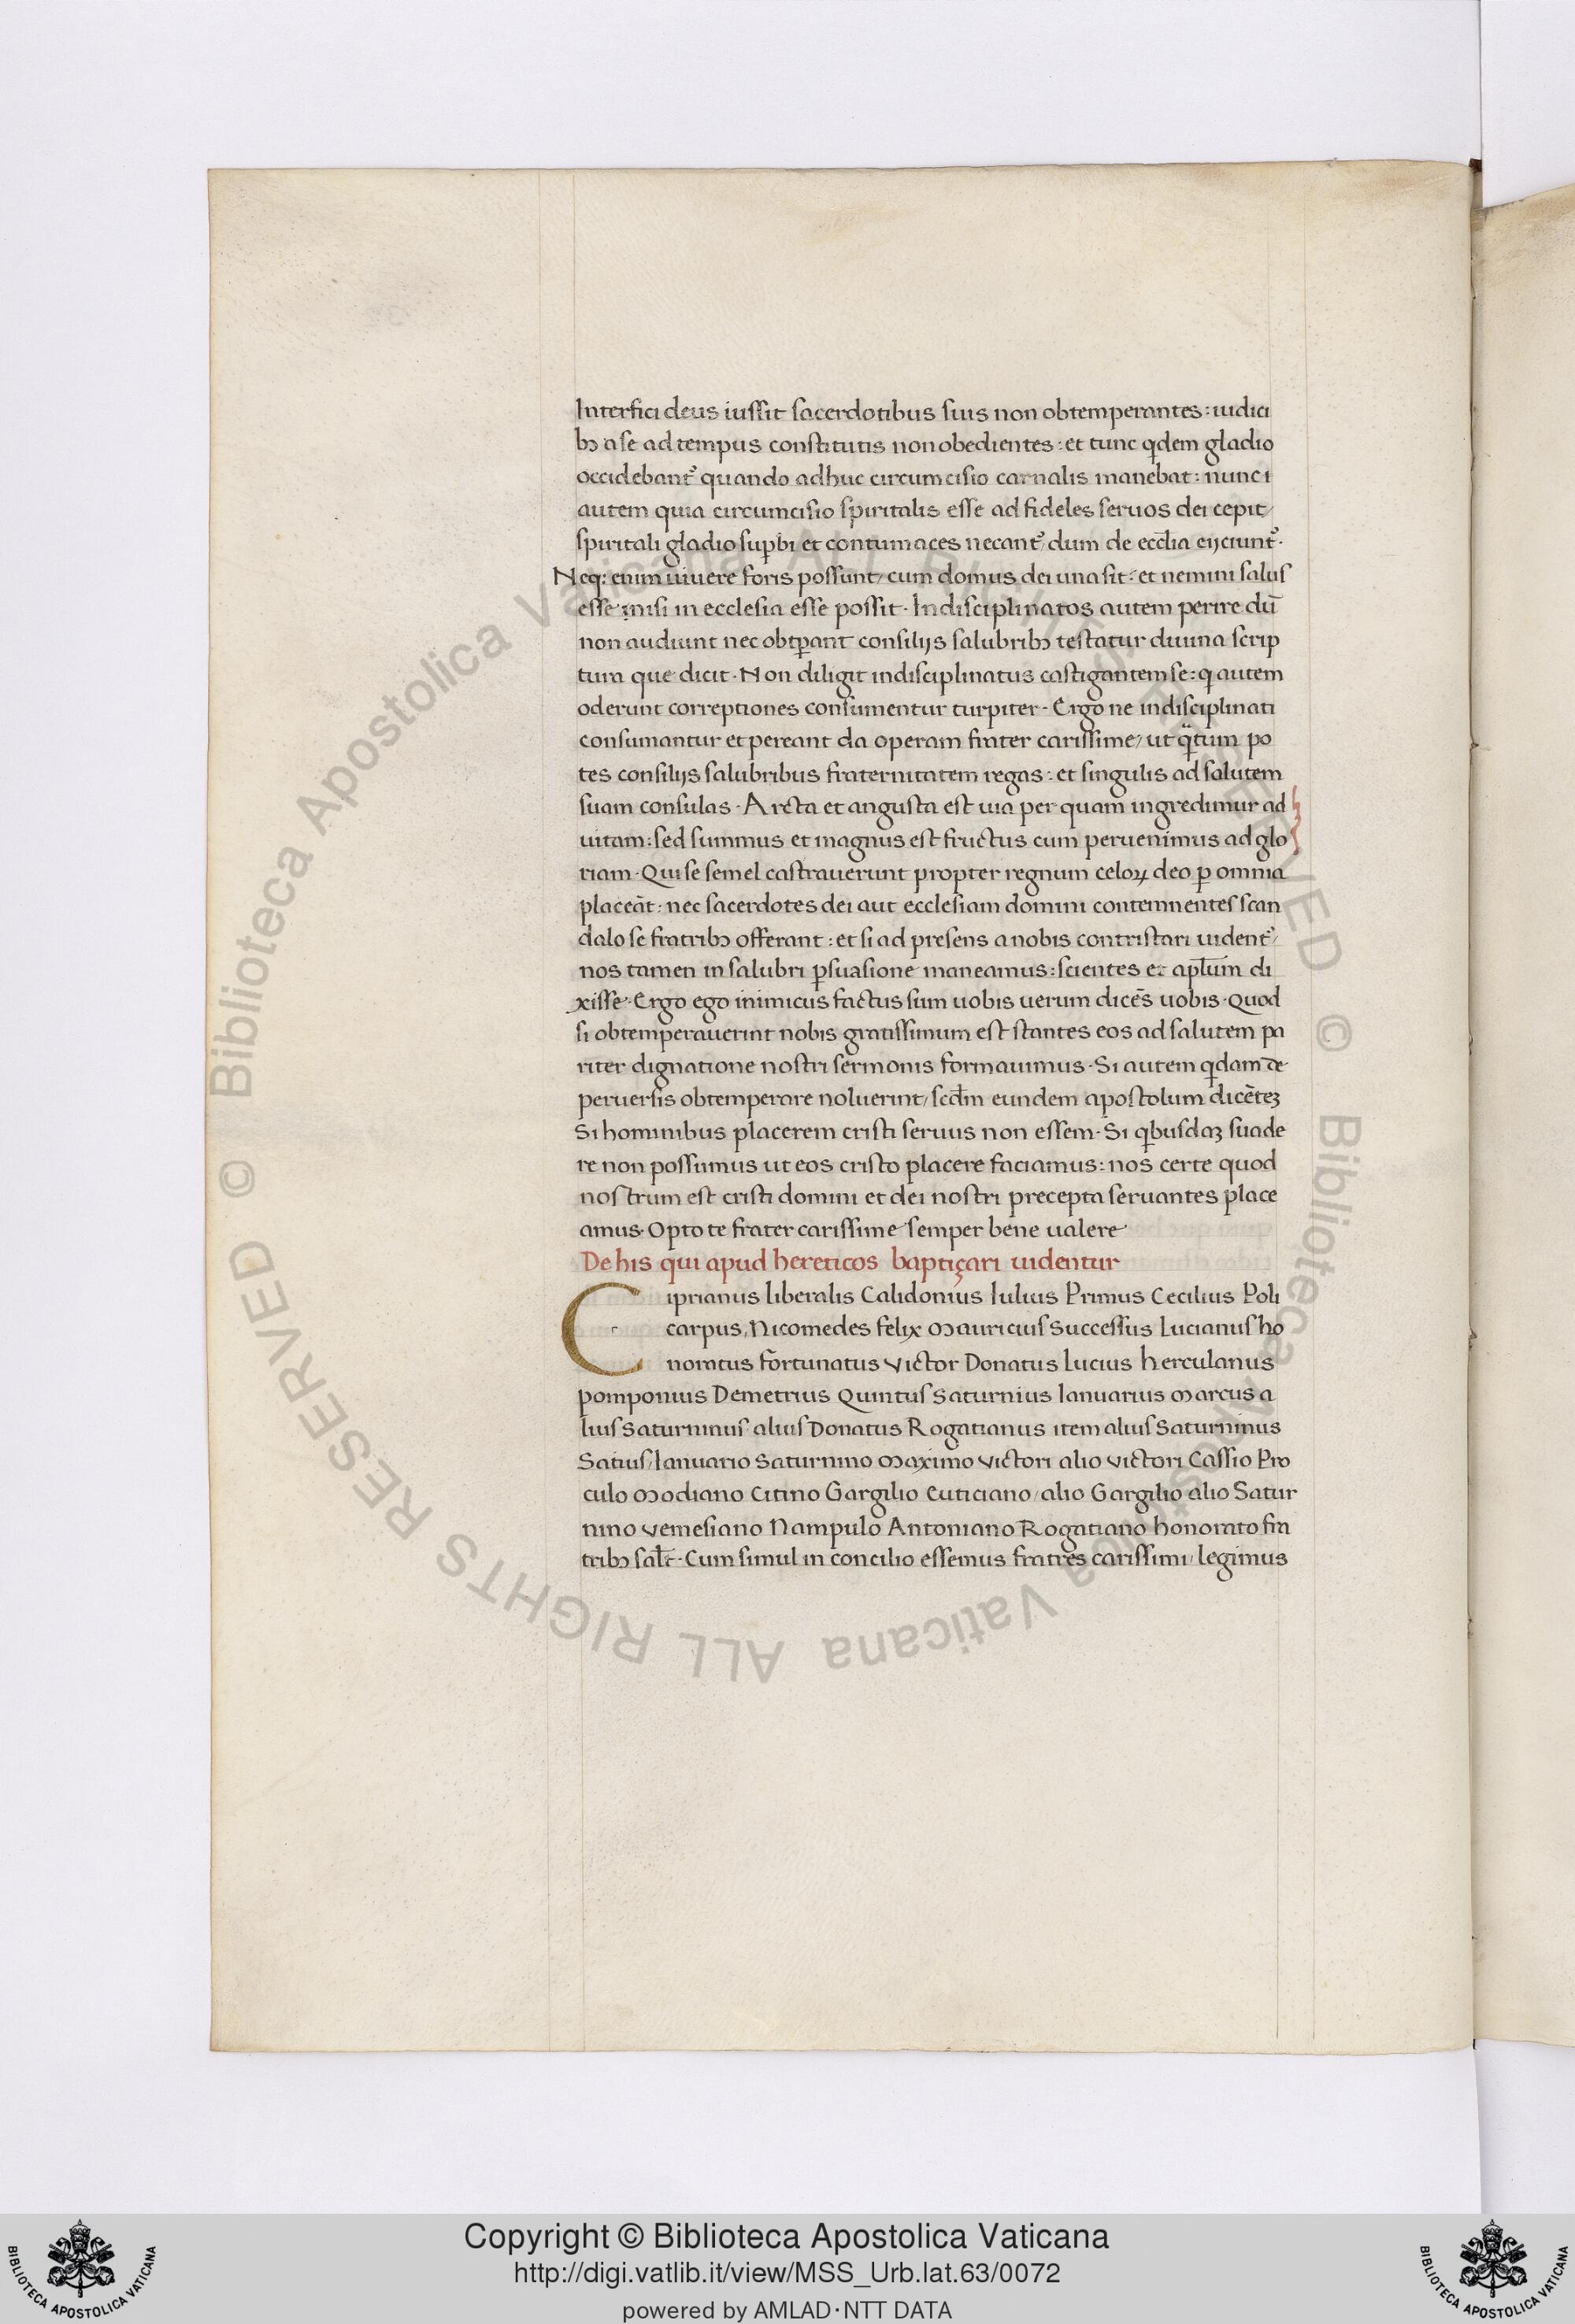 Interfici deus iussit sacerdotibus suis non obtemperantes: iudici
bꝫ a se ad tempus constitutis non obedientes: et tunc qdem gladio
occidebant᷑ quando adhuc circumcisio carnalis manebat: nunc
autem quia circumcisio spiritalis esse ad fideles seruos dei cepit/
spiritali gladio suꝑbi et contumaces necant᷑/ dum de eccl̄ia eijciunt᷑.
Neq: enim uiuere foris possunt/ cum domus dei una sit: et nemini salus
esse nisi in ecclesia esse possit. Indisciplinatos autem perire dū
non audiunt nec obtꝑant consilijs salubribꝫ testatur diuina scrip
tura que dicit. Non diligit indisciplinatus castigantem se: q autem
oderunt correptiones consumentur turpiter. Ergo ne indisciplinati
consumantur et pereant da operam frater carissime/ ut qͣtum po
tes consilijs salubribus fraternitatem regas: et singulis ad salutem
suam consulas. Arcta et angusta est uia per quam ingredimur ad
uitam: sed summus et magnus est fructus cum peruenimus ad glo
riam. Qui se semel castrauerunt propter regnum celoꝝ deo ꝑ omnia
placeāt: nec sacerdotes dei aut ecclesiam domini contemnentes scan
dalo se fratribꝫ offerant: et si ad presens a nobis contristari uident᷑/
nos tamen in salubri ꝑsuasione maneamus: scientes et apl̄um di
xisse. Ergo ego inimicus factus sum uobis uerum dicēs uobis. Quod
si obtemperauerint nobis gratissimum est stantes eos ad salutem pa
riter dignatione nostri sermonis formauimus. Si autem qdam de
peruersis obtemperare noluerint/ scd̄m eundem apostolum dicēteꝫ
Si hominibus placerem cristi seruus non essem. Si qbusdaꝫ suade
re non possumus ut eos cristo placere faciamus: nos certe quod
nostrum est cristi domini et dei nostri precepta seruantes place
amus. Opto te frater carissime semper bene ualere
De his qui apud hereticos baptiçari uidentur
Ciprianus liberalis Calidonius Iulius Primus Cecilius Poli
carpus, Nicomedes felix Mauricius Successus Lucianus ho
noratus fortunatus Victor Donatus Lucius herculanus
pomponius Demetrius Quintus Saturnius Ianuarius Marcus a
lius Saturninus alius Donatus Rogatianus item alius Saturninus
Satius/ Ianuario Saturnino Maximo Victori alio Victori Cassio Pro
culo Modiano Citino Gargilio Euticiano/ alio Gargilio alio Satur
nino Vemesiano Nampulo Antoniano Rogatiano honorato fra
tribꝫ sal̄t. Cum simul in concilio essemus fratres carissimi/ legimus
© Biblioteca Apostolica Vaticana ALL RIGHTS RESERVED © Biblioteca Apostolica Vaticana ALL RIGHTS RESERVED
Copyright © Biblioteca Apostolica Vaticana
http://digi.vatlib.it/view/MSS_Urb.lat.63/0072
powered by AMLAD·NTT DATA
BIBLIOTECA APOSTOLICA VATICANA
BIBLIOTECA APOSTOLICA VATICANA